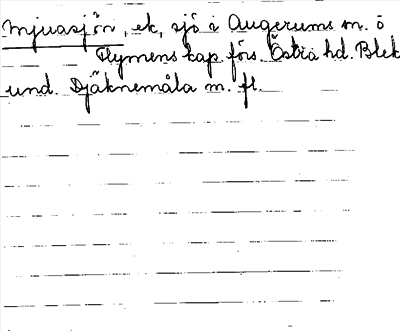 Mjuasjön, ek, sjö i Augerums sn. o
Flymens kap. förs. Östra hd. Blek
und. Djäknemåla m. fl.